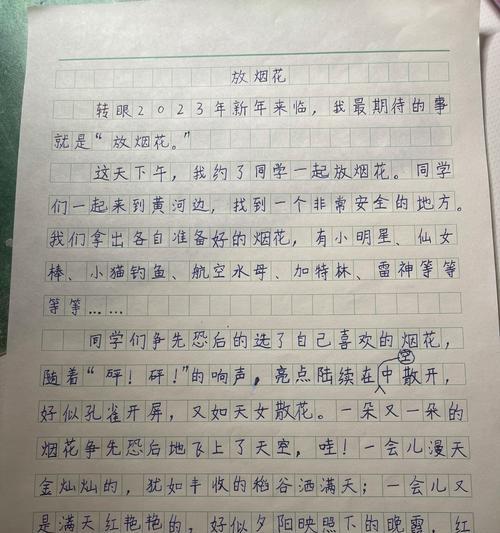 放烟花
转眼2023年新年来临，我最期待的事
就是“放烟花。”
这天下午，我约了同学一起放烟花。同学
们一起来到黄河边，找到一个非常安全的地方。
我们拿出各自准备好的烟花，有小明星、仙女
棒、小猫钓鱼、航空水母、加特林、雷神等等
等等……
同学们争先恐后的选了自己喜欢的烟花，
随着“砰！砰！”的响声，亮点陆续在空中散开，
好似孔雀开屏，又如天女散花。一朵又一朵的
烟花争先恐后地飞上了天空，哇！一会儿漫天
金灿灿的，犹如丰收的稻谷洒满天；一会儿又
是满天红艳艳的，好似夕阳映照下的晚霞，红